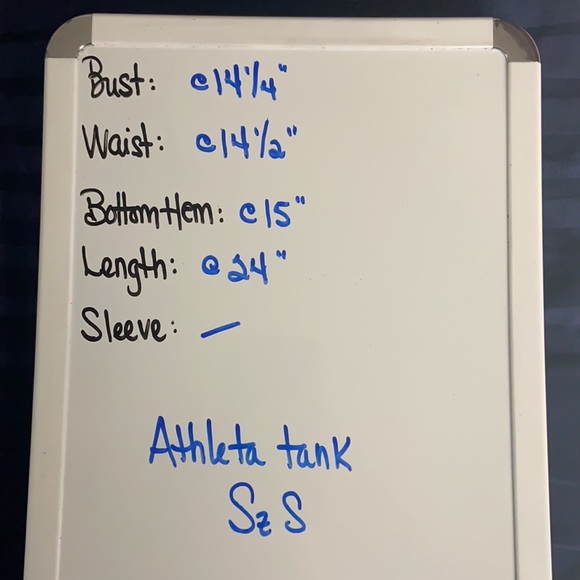 Bust: c14 1/4"
Waist: c14 1/2"
Bottom Hem: c15"
Length: c24"
Sleeve: —
Athleta tank
Sz S